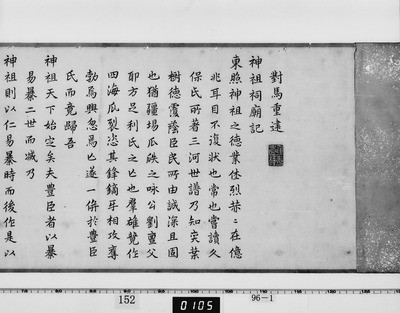 對馬重建
神祖祠廟記
東照神祖之德業休烈赫々在億
兆耳目不復狀也常也嘗讀久
保氏所著三河世譜乃知奕葉
樹德覆蔭臣民所由誠深且固
也猶疆場瓜瓞之咏公劉亶父
耶方足利氏之亡也羣雄競作
四海瓜裂恣其鋒鏑牙相攻奪
勃焉興忽焉亡遂一併於豐臣
氏而竟歸吾
神祖天下始定矣夫豐臣者以暴
易暴二世而滅乃
神祖則以仁易暴時而後作是以
152
0105
96-1